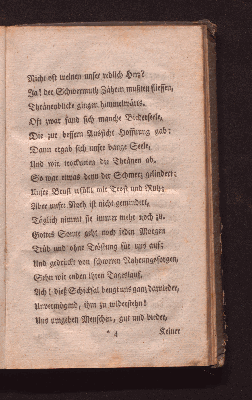 Nicht oft weinen unser redlich Herz?
Ja! der Schwermuth Zähren mußten fliessen,
Thränenblicke giengen himmelwärts.
Oft zwar fand sich manche Biederseele,
Die zur bessern Aussicht Hoffnung gab:
Dann ergab sich unsre bange Seele,
Und wir trockneten die Thränen ab.
So war etwas denn der Schmerz gelindert;
Unsre Brust erfüllt mit Trost und Ruh;
Aber unsre Noth ist nicht gemindert,
Täglich nimmt sie immer mehr noch zu.
Gottes Sonne geht noch jeden Morgen
Trüb und ohne Tröstung für uns auf;
Und gedrückt von schweren Nahrungssorgen,
Sehn wir enden ihren Tageslauf.
Ach! dieß Schicksal beugt uns ganz darnieder,
Unvermögend, ihm zu widerstehn!
Uns umgeben Menschen, gut und bieder,
* 4 Keiner